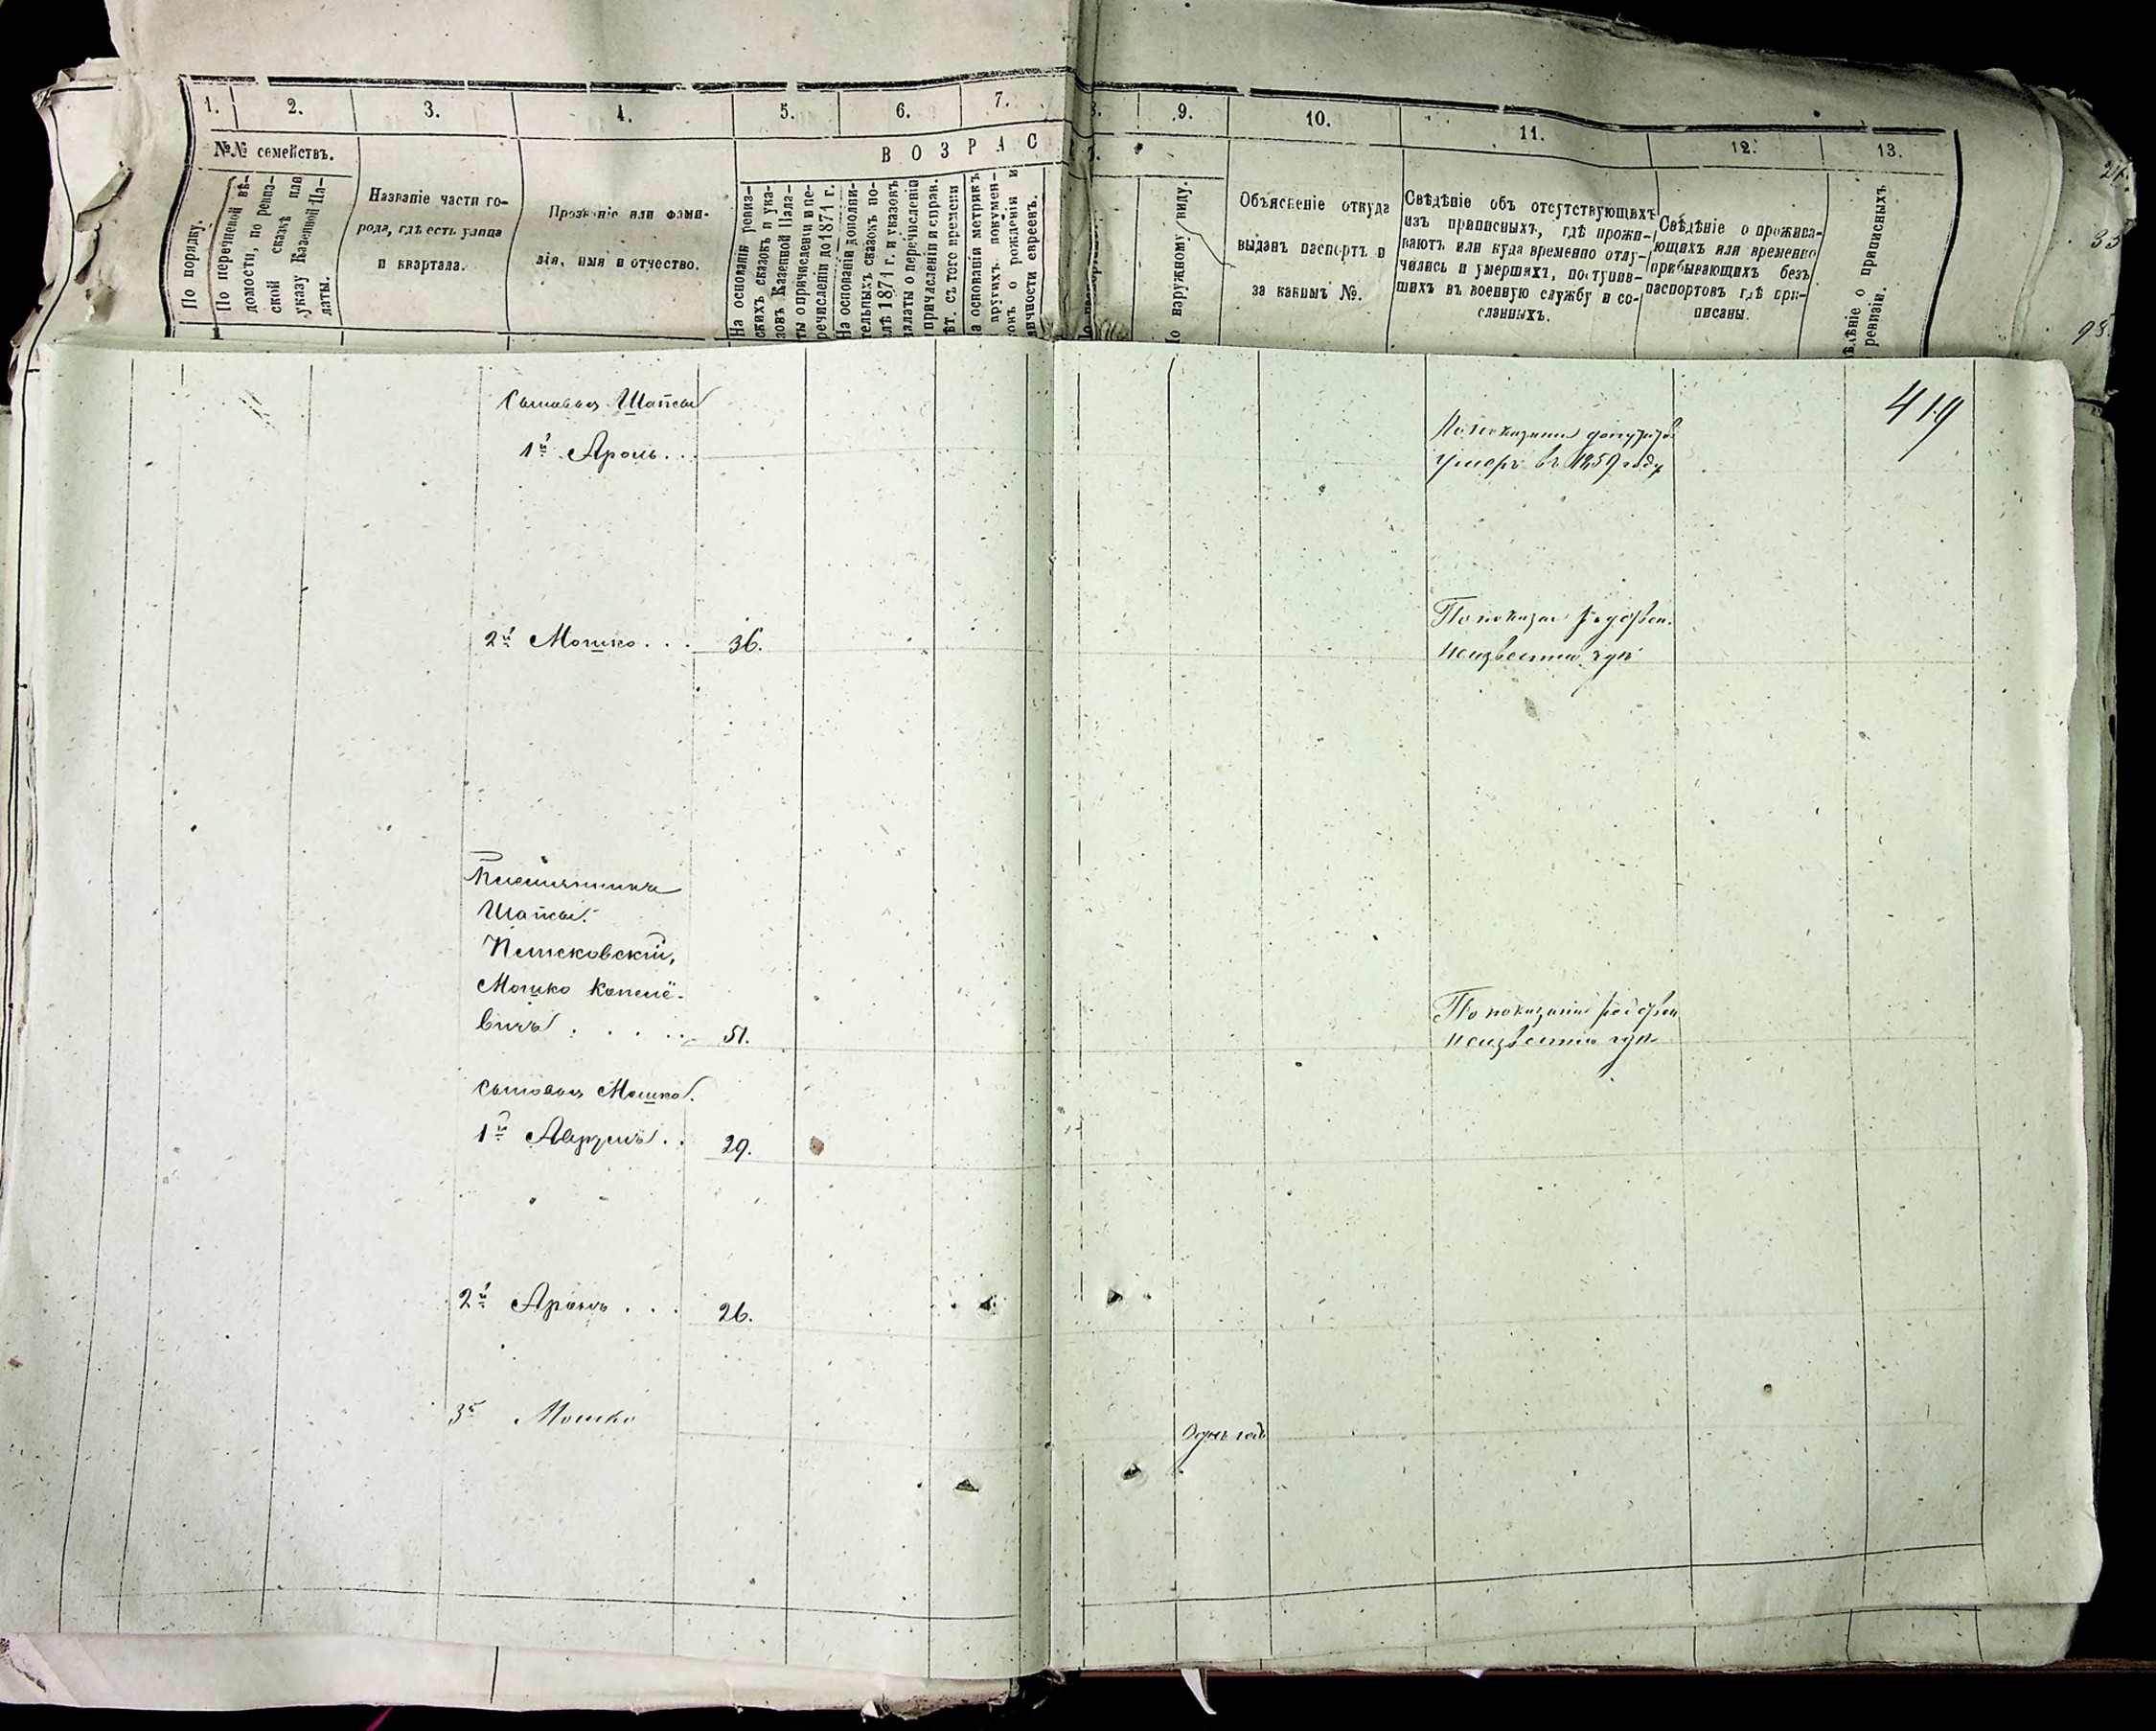 1. 2. 3. 4. 5. 6. 7. 8. 9. 10. 11. 12. 13.
№№ семействъ.
В О З Р А С
По порядку.
По перечневой вѣ-
домости, по ревиз-
ской сказкѣ или
указу Казенной Па-
латы.
Названіе части го-
рода, гдѣ есть улица
и квартала.
Прозваніе или фами-
лія, имя и отчество.
На основаніи ревиз-
скихъ сказокъ и ука-
зовъ Казенной Пала-
ты о причисленіи и пе-
речисленіи до 1871 г.
На основаніи дополни-
тельныхъ сказокъ по-
слѣ 1871 г. и указовъ
палаты о перечисленіи
причисленіи и справ.
ѣт. съ того времени
а основаніи метрикъ
другихъ докумен-
товъ о рожденіи и
личности евреевъ.
по наружному виду.
Объясненіе откуда
выданъ паспортъ и
за какимъ №.
Свѣдѣніе объ отсутствующихъ
изъ приписныхъ, гдѣ прожи-
ваютъ или куда временно отлу-
чились и умершихъ, поступив-
шихъ въ военную службу и со-
сланныхъ.
Свѣдѣніе о прожива-
ющихъ или временно
прибывающихъ безъ
паспортовъ гдѣ при-
писаны.
ѣдѣніе о приписныхъ
ревизіи.
419
Сыновья Шапсы
1й Ароль...
По показанію депутатовъ
умеръ въ 1859 году
2й Мошко... 36.
По показан родствен.
неизвестно гдѣ
Племянникъ
Шапсы.
Мошко Копелё-
вичъ..... 51.
По показанію родствен
неизвестно гдѣ
Сыновья Мошка.
1й Аврумъ.. 29.
2й Аронъ... 26.
3й Мошко
Одинъ годъ